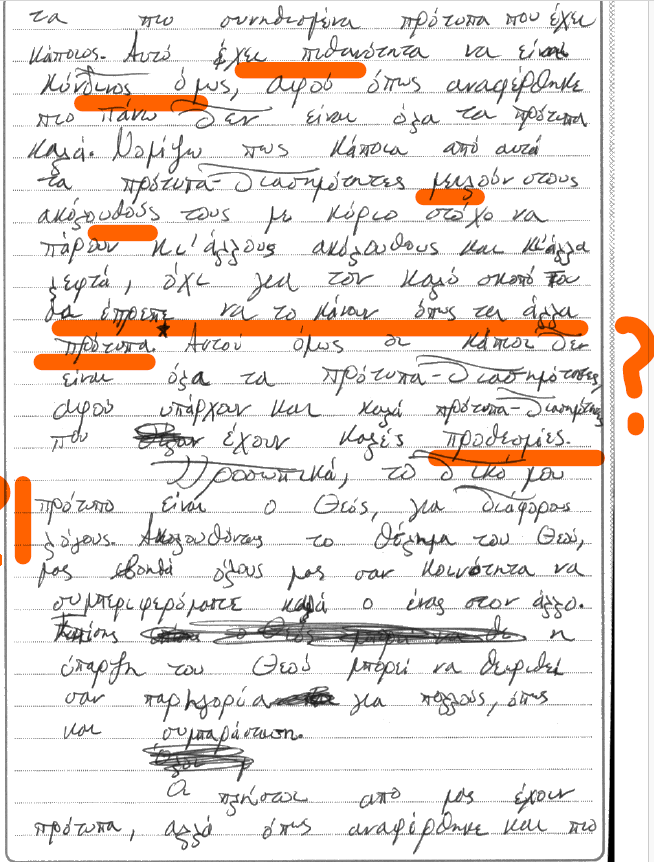 τα πιο συνηθισμένα πρότυπα που έχει
κάποιος. Αυτό έχει πιθανότητα να είναι
κίνδινος όμως, αφού όπως αναφέρθηκε
πιο πάνω δεν είναι όλα τα πρότυπα
καλά. Νομίζω πως κάποια από αυτά
τα πρότυπα-διασημότητες μειλούν στους
ακόλουθούς τους με κύριο στόχο να
πάρουν κι' άλλους ακόλουθους και κι' άλλα
λεφτά, όχι για τον καλό σκοπό που
θα έπρεπε να το κάνουν όπως τα άλλα
πρότυπα. Αυτού όμως οι κάποιοι δεν
είναι όλα τα πρότυπα-διασημότητες,
αφού υπάρχουν και καλά πρότυπα-διασημότητες
που έχουν καλές προθεσμίες.
Προσωπικά, το δικό μου
πρότυπο είναι ο Θεός, για διάφορους
λόγους. Ακολουθώντας το θέλημα του Θεού,
μας βοηθά όλους μας σαν κοινότητα να
συμπεριφερόμαστε καλά ο ένας στον άλλο.
Επίσης η
ύπαρξη του Θεού μπορεί να θεωριθεί
σαν παρηγορία για πολλούς, όπως
και συμπαράσταση.
Οι πλήστοι από μας έχουν
πρότυπα, αλλά όπως αναφέρθηκε και πιο
?
!